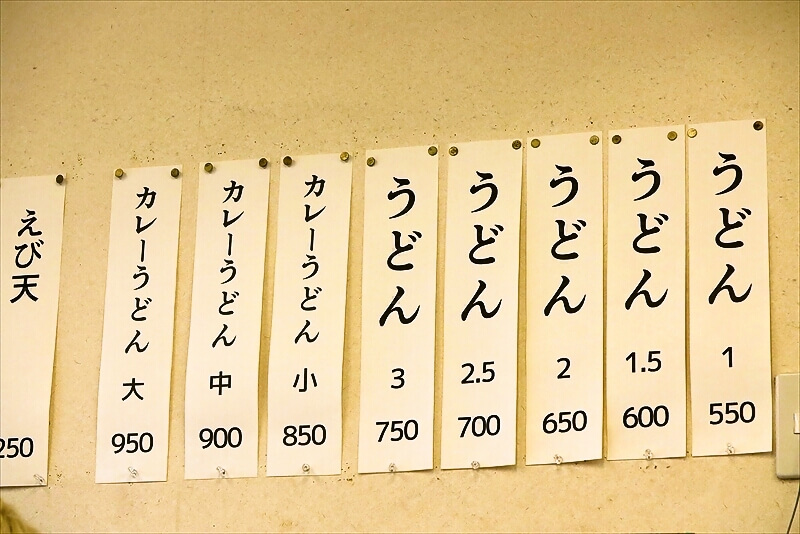 うどん 1 550
うどん 1.5 600
うどん 2 650
うどん 2.5 700
うどん 3 750
カレーうどん 小 850
カレーうどん 中 900
カレーうどん 大 950
えび天 250